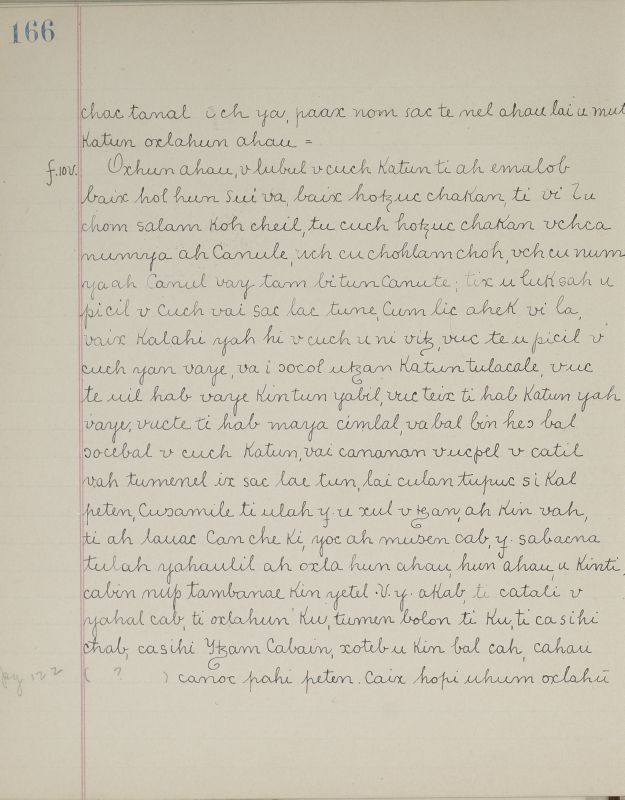 166
chac tanal och ya, paax nom sac te nel ahau lai u mut
Katun oxlahun ahau =
f.10v. Oxhun ahau, v lubul v cuch Katun ti ah emalob
baix hol hun Sui va, baix hotzuc chakan, ti vi
chom salam Koh cheil, tu cuch hotzuc chakan vchca
numya ah Canule, uch cu chohlam choh, vch cu num
ya ah Canul vay tam bitun Canute; tix u luksah u
picil v cuch vai sac lac tune, Cum lic ahek vi la,
vaix Kalahi yah hi v cuch u ni vitz, vuc te u picil v
cuch yan vaye, va i ɔocol utzan Katun tulacale, vuc
te uil hab vaye Kintun yabil, vuc teix ti hab Katun yah
vaye, vucte ti hab maya cimlal, va bal bin heɔ bal
ɔocebal v cuch Katun, vai cananan vucpel v catil
vah tumenel ix sac lac tun, lai culan tupuc si kal
peten, Cuɔamile ti ulah y. u xul v tzan, ah Kin vah,
ti ah lauac Can che Ki, yoc ah musen cab, y. sabacna
tulah yahaulil ah oxla hun ahau, hun ahau, u Kinti
cabin nup tambanac Kin yetel .V. y. aKab, ti catali v
yahal cab, ti oxlahun Ku, tumen bolon ti Ku, ti ca sihi
chab, ca sihi Ytzam Cabain, xoteb u Kin bal cah, cahau
pg 122 ( ? ) canoc pahi peten. Caix hopi uhum oxlahū